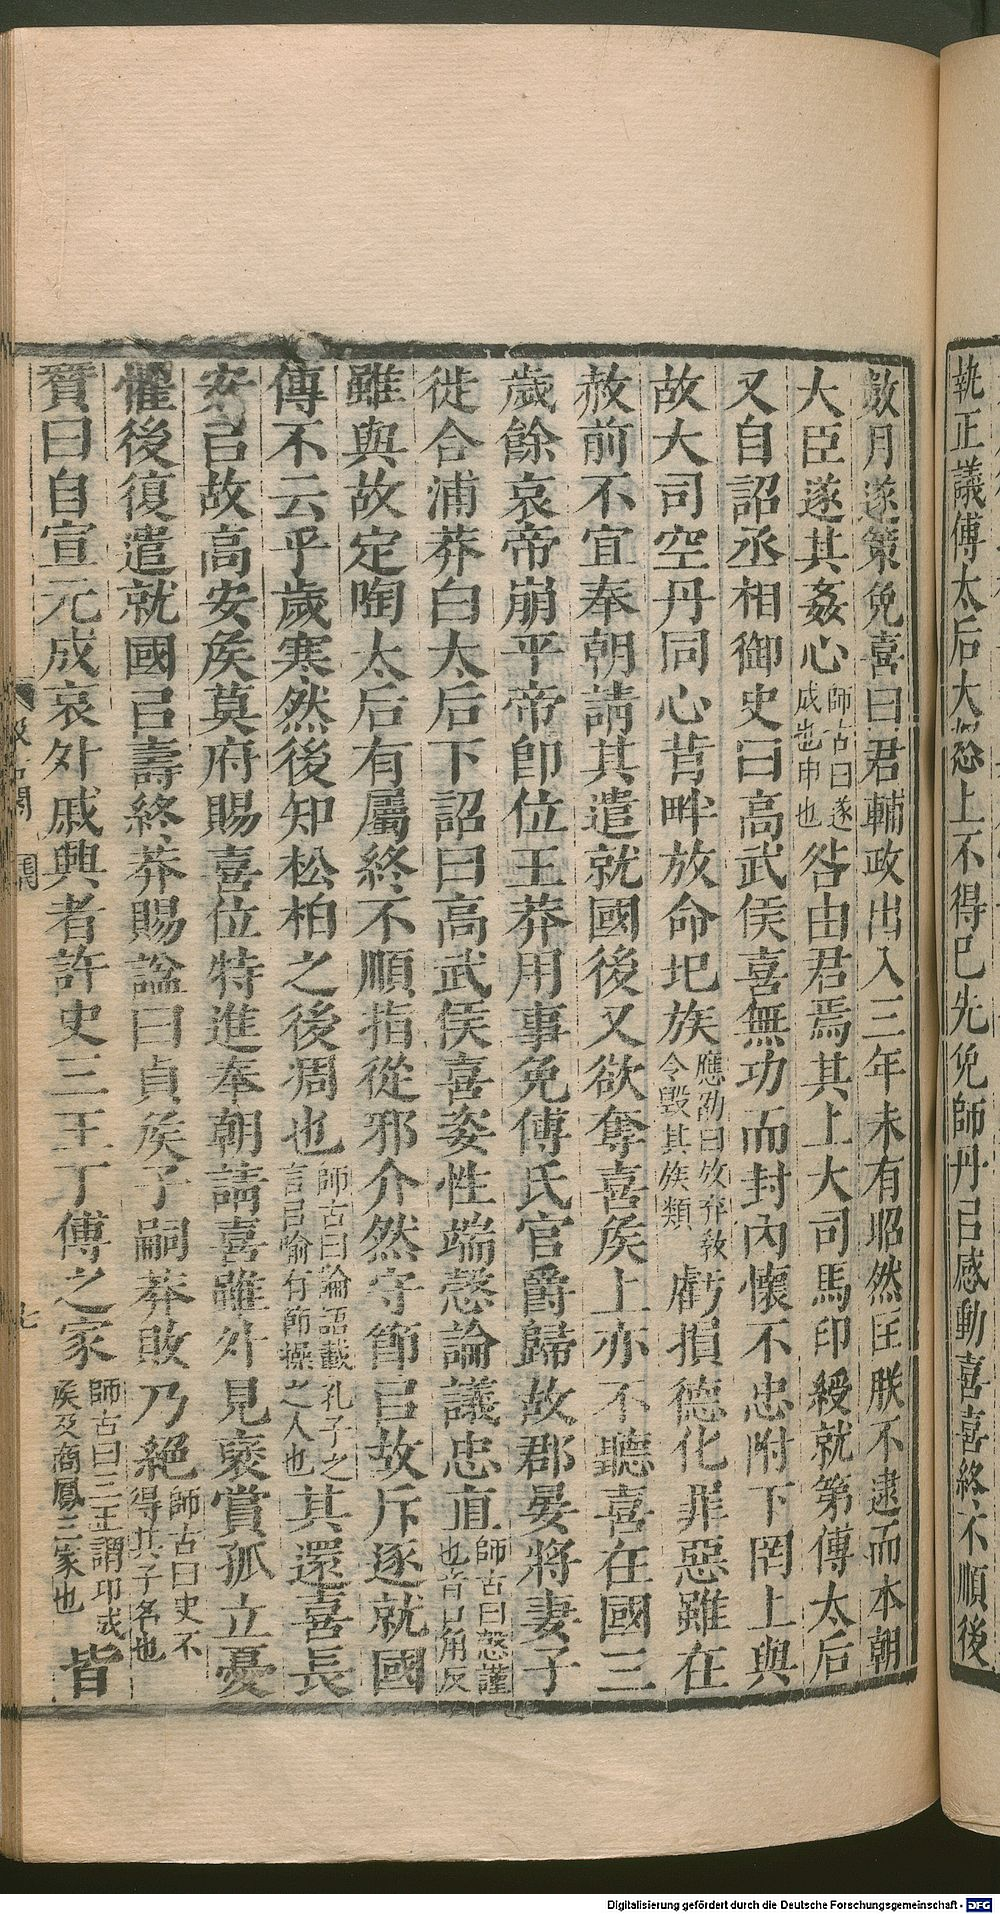 執正議傅太后大怒上不得已先免師丹㠯感動喜喜終不順後
數月遂策免喜曰君輔政出入三年未有昭然匡朕不逮而本朝
大臣遂其姦心師古曰遂成也申也咎由君焉其上大司馬印綬就第傅太后
又自詔丞相御史曰高武侯喜無功而封內懷不忠附下罔上與
故大司空丹同心背畔放命圮族應劭曰放弃敎令毀其族類虧損德化罪惡雖在
赦前不宜奉朝請其遣就國後又欲奪喜矦上亦不聽喜在國三
歲餘哀帝崩平帝卽位王莽用事免傅氏官爵歸故郡晏將妻子
徙合浦莽白太后下詔曰高武侯喜姿性端愨論議忠直師古曰愨謹也音口角反
雖與故定陶太后有屬終不順指從邪介然守節㠯故斥逐就國
傳不云乎歲寒然後知松柏之後凋也師古曰論語載孔子之言㠯喻有節操之人也其還喜長
安㠯故高安矦莫府賜喜位特進奉朝請喜雖外見襃賞孤立憂
懼後復遣就國㠯壽終莽賜諡曰貞矦子嗣莽敗乃絕師古曰史不得其子名也
贊曰自宣元成哀外戚興者許史三王丁傅之家師古曰三王謂卭成矦及商鳳三家也皆
汲古閣
七
Digitalisierung gefördert durch die Deutsche Forschungsgemeinschaft - DFG